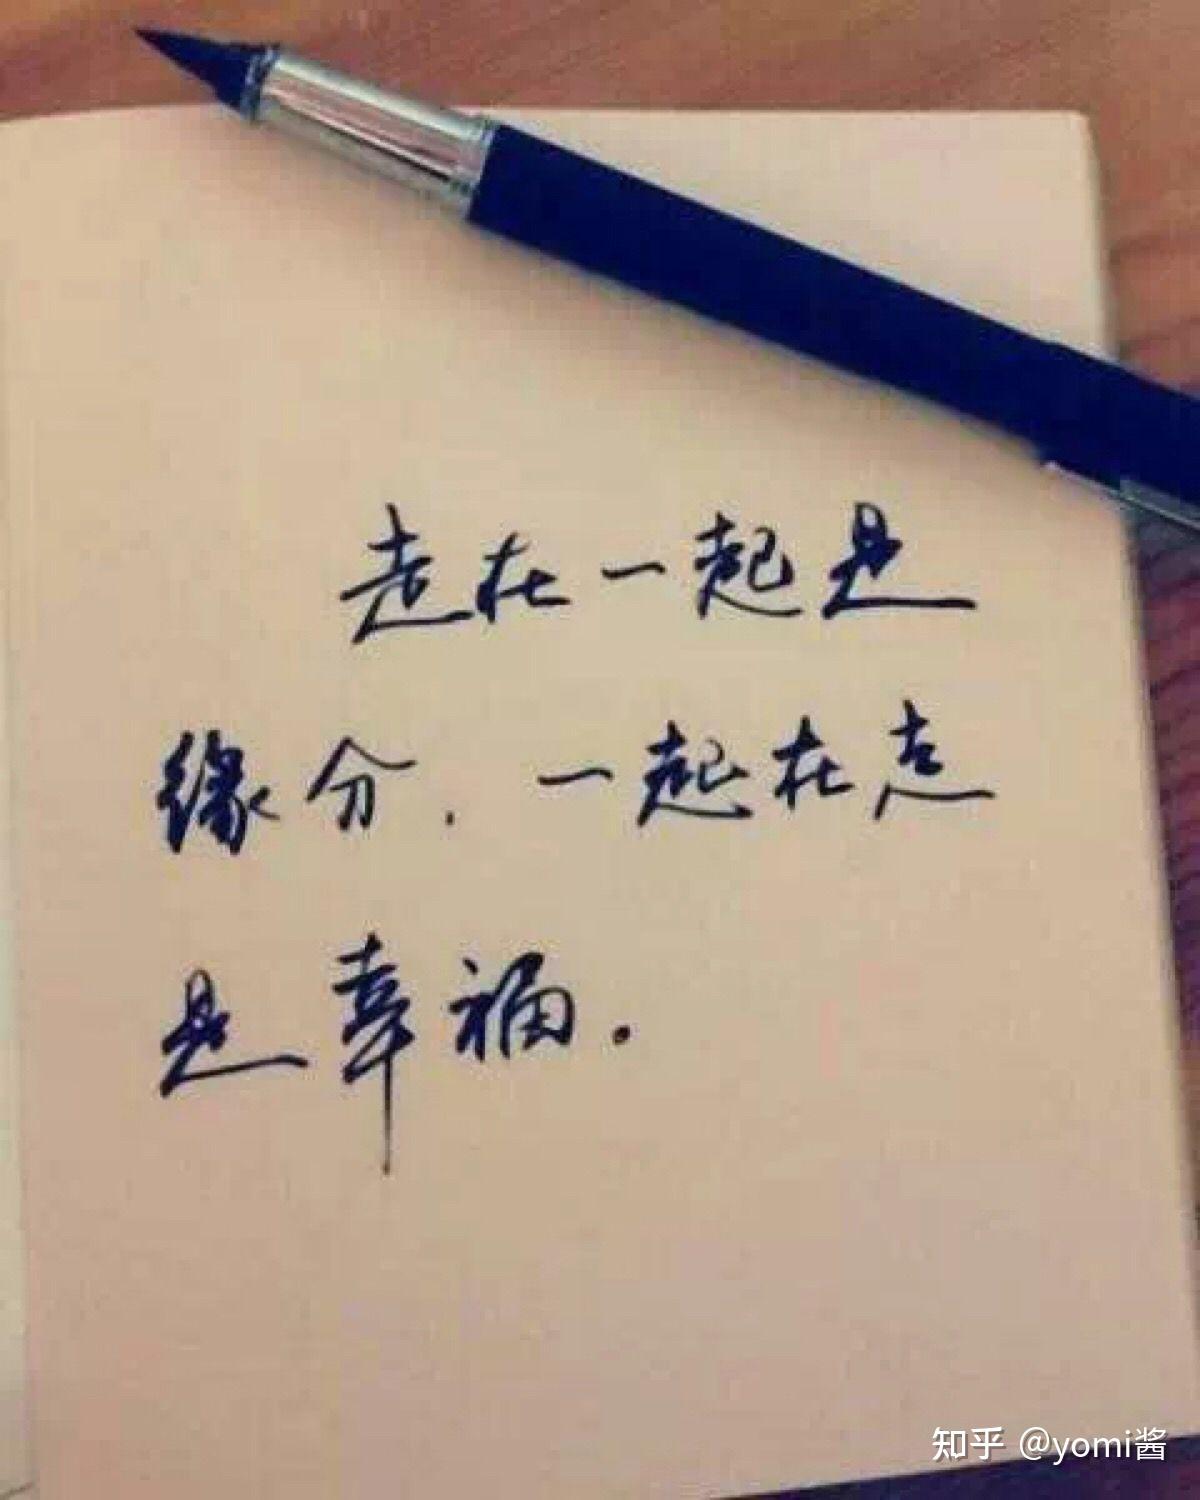 走在一起是
缘分，一起在走
是幸福。
知乎 @yomi酱